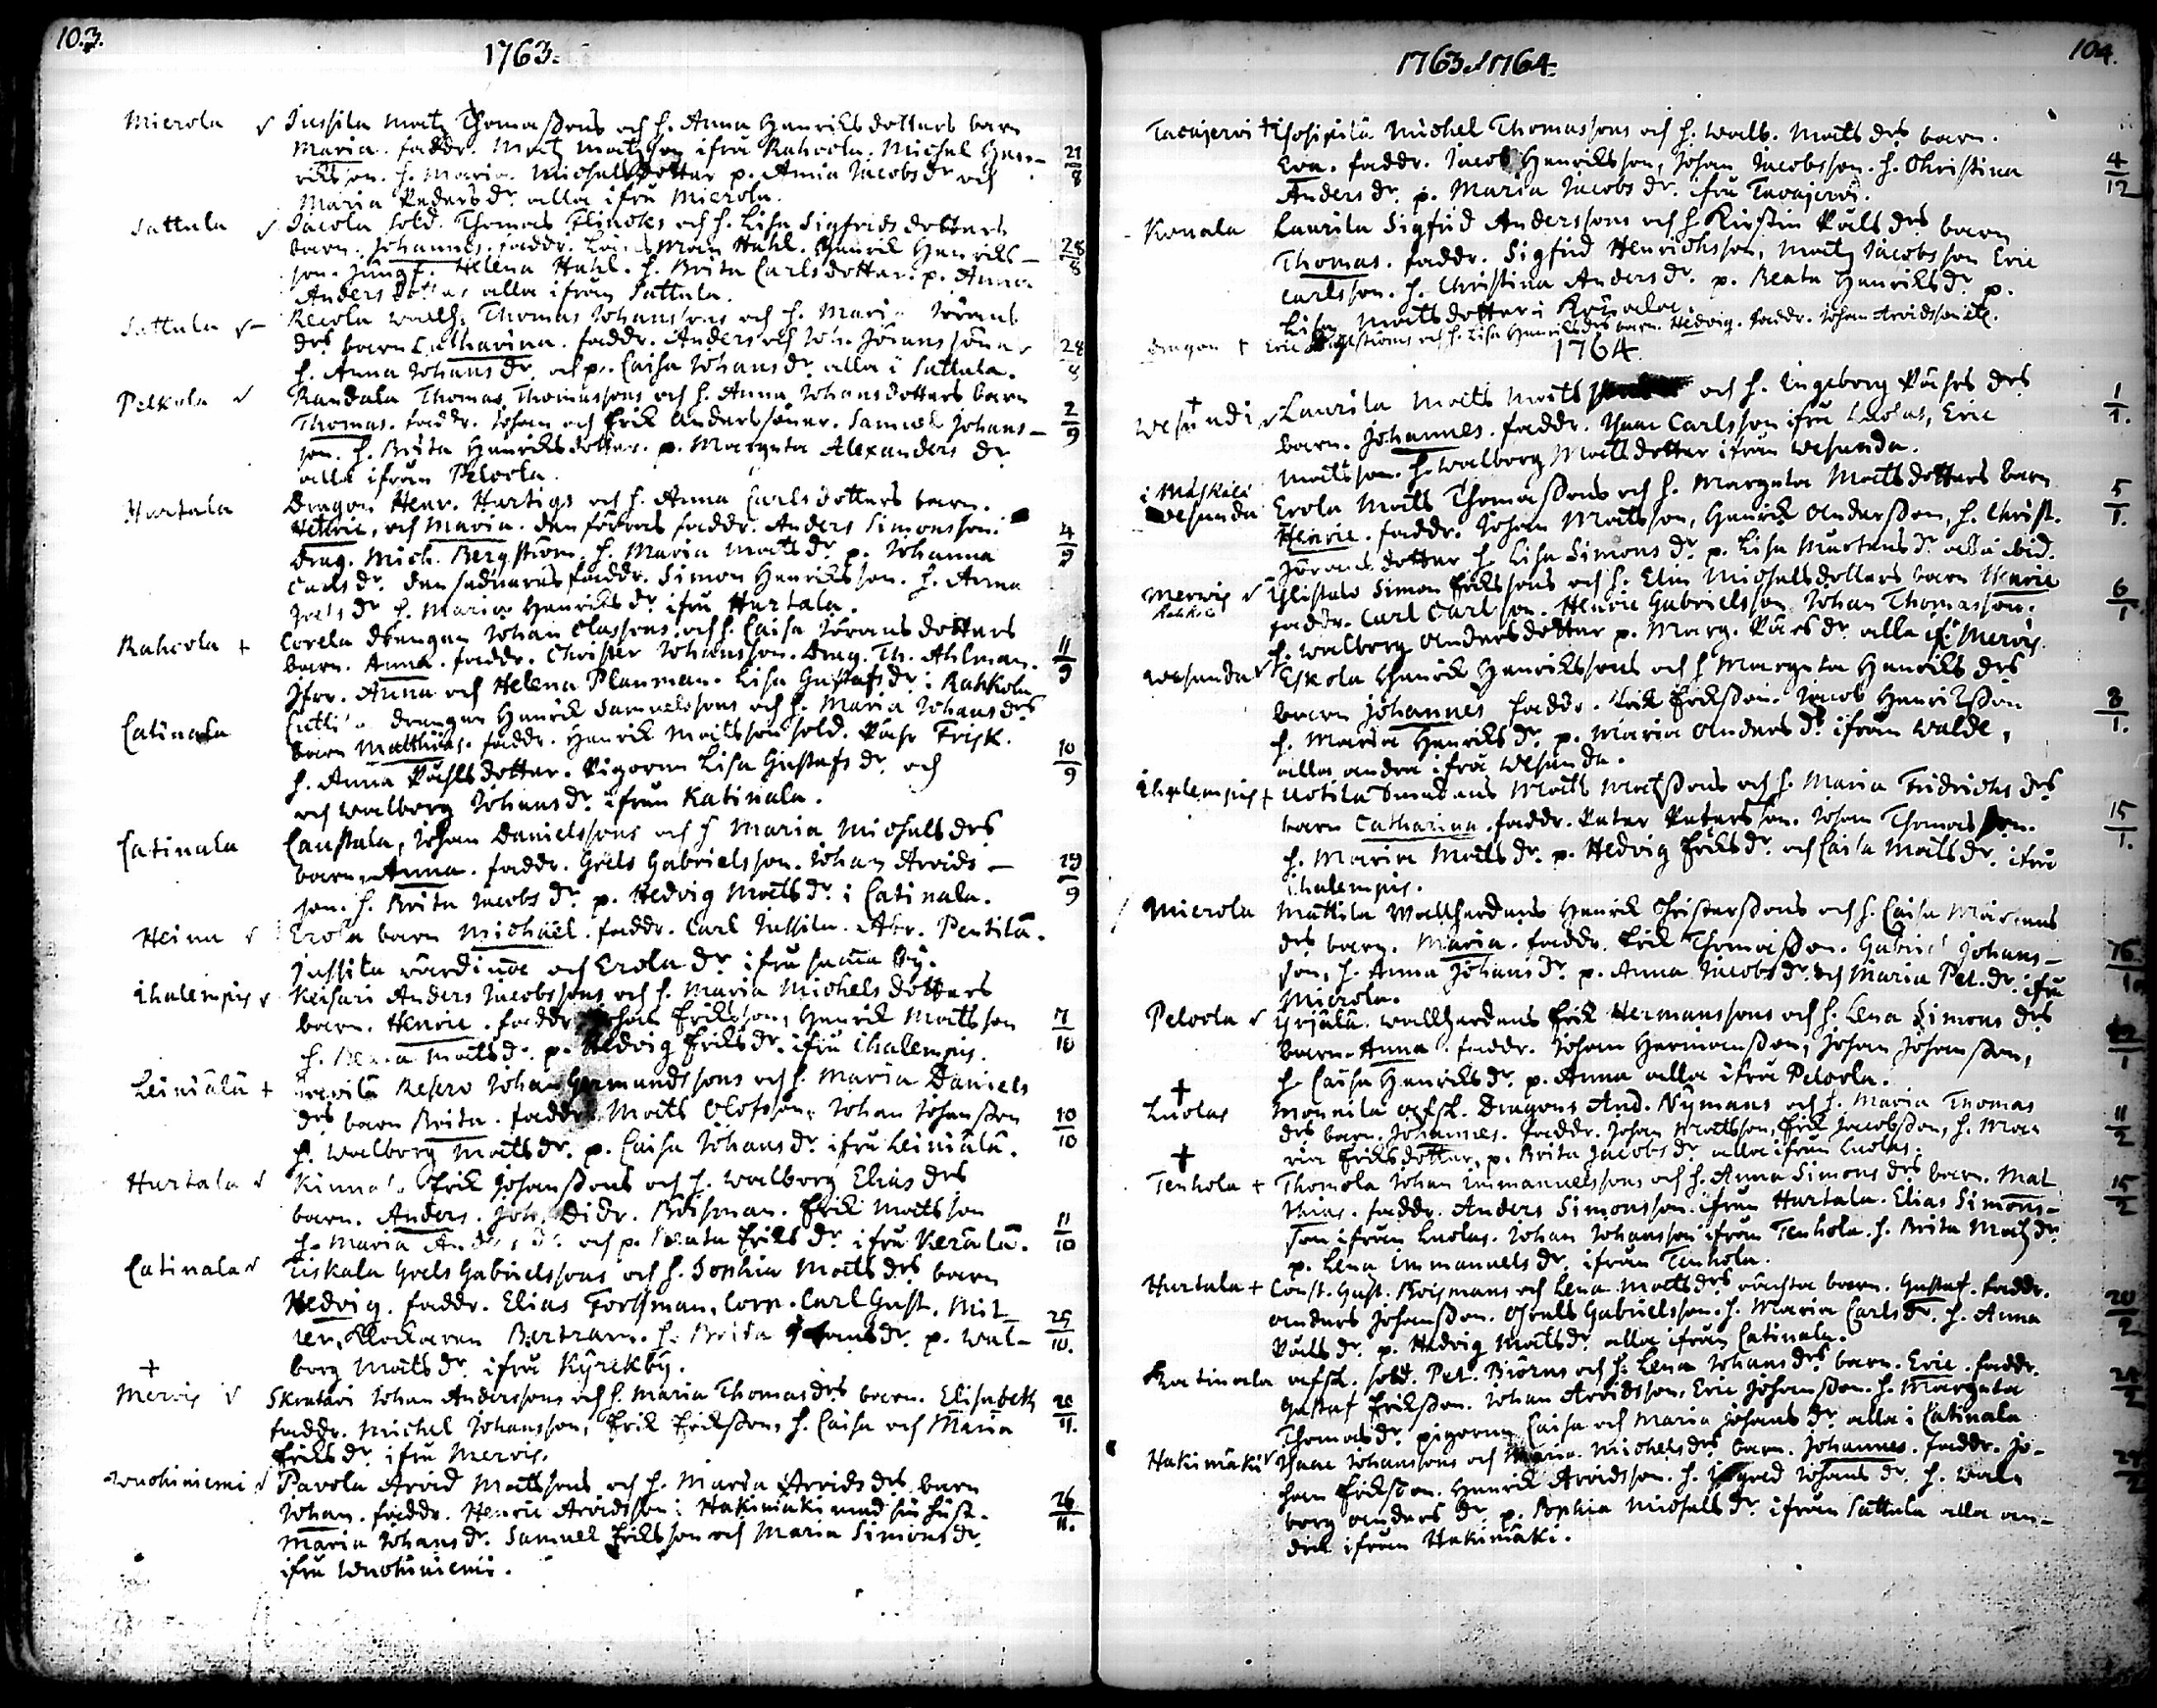 103.
1763.
Mierola Jussila Matz Thomassons och h. Anna Henricks dotters barn
Maria. faddr. Matz Matzson ifrå Rahcola. Michel Hen- 21/8
ricksson. h. Maria Michelsdotter p. Anna Jacobs dr och
Maria Peders dr. alla ifrå Mierola.
Sattula Jacola sold. Thomas Flincks och h. Lisa Sigfrids dotters
barn. Johannes. faddr. Man Hahl. Henrik Henriks- 28/8
son. Jungf. Helena Hahl. h. Brita Carlsdotter. p. Anna
Anders dotter alla ifrån Sattula.
Sattula Recola Thomas Johanssons och h. Maria Jörans
drs barn Catharina. faddr. Anders och Joh. Jöranssöner 28/8
h. Anna Johans dr. och p. Caisa Johans dr. alla i Sattula.
Pelkola Randala Thomas Thomassons och h. Anna Johansdotters barn
Thomas. faddr. Johan och Erik Anderssöner. Samuel Johans- 2/9
son. h. Brita Henricksdotter. p. Margeta Alexanders dr
alla ifrån Pelcola.
Hurtala Dragon Henr. Hartigs och h. Anna Carlsdotters barn.
Henric, och Maria. den förras faddr. Anders Simonsson.
Drag. Mich. Bergström. h. Maria Mats dr. p. Johanna 4/9
Carls dr. den sednares faddr. Simon Henriksson. h. Anna
Joels dr h. Maria Henriks dr. ifrå Hurtala.
Rahcola + Corela drängen Johan Classons. och h. Caisa Jörans dotters
barn. Anna. faddr. Christer Johansson. Drag. Th. Ahlman. 11/9
Jfrr. Anna och Helena Planman. Lisa Gustafs dr. i Rahkola
Catinala drengen Henrik Samuelssons och h. Maria Johans drs
barn Matthias. faddr. Henrik Mattsson sold. Påhr Frisk. 10/9
h. Anna Påhlsdotter. Pigorna Lisa Gustafs dr. och
och Walborg Johans dr. ifrån Katinala.
Catinala Caustala, Johan Danielssons och h Maria Michels drs
barn. Anna. faddr. Grels Gabrielsson. Johan Arvids- 29/9
son. h. Brita Jacobs dr. p. Hedvig Mats dr. i Catinala.
Heinu Erola barn Michäel. faddr. Carl Jussila. Abr. Pentilä.
Jussila wärdinna och Erola dr. ifrå samma by.
Ihalempis Keisari Anders Jacobssons och h. Maria Michels dotters
barn. Henric. faddr. Johan Eriksson, Henrik Matsson 7/10
h. Mats dr. p. Hedvig Eriks dr. ifrå Ihalempis.
Leiniälä + Reserv Johan Germundssons och h. Maria Daniels
drs barn Brita. faddr. Mats Olofsson, Johan Johansson 10/10
h. Walborg Mats dr. p. Caisa Johans dr. ifrå Leiniälä.
Hurtala Erik Johanssons och h. Walborg Elias drs
barn. Anders. Joh. Didr. Boisman. Erik Matsson 11/10
h. Maria dr. och p. Beata Eriks dr. ifrå Kerälä.
Catinala Tiskala Grels Gabrielssons och h. Sophia Mats drs barn
Hedvig. faddr. Elias Forssman, Corp. Carl Gust. Mil- 25/10.
ler, Klockaren Bertram. h. Brita Johans dr. p. Wal-
borg Mats dr. ifrå Kyrckby.
+
Mervis Skreddari Johan Anderssons och h. Maria Thomas drs barn. Elisabeth
faddr. Michel Johansson, Erik Eriksson, h. Caisa och Maria 20/11.
Eriks dr. ifrå Mervis.
Wuohiniemi Pavola Arvid Matssons och h. Maria Arvids drs barn
Johan. faddr. Henric Arvidsson i Hakimäki med sin hust. 26/11.
Maria Johans dr. Samuel Eriksson och Maria Simons dr.
ifrå Wuohiniemi.
104.
1763. 1764.
Tavajervi + Michel Thomassons och h. Walb. Mats drs barn.
Eva. faddr. Jacob Henriksson, Johan Jacobsson. h. Christina 4/12
Anders dr. p. Maria Jacobs dr. ifrå Tavajervi.
Konala Laurila Sigfrid Anderssons och h Kirstin Påls drs barn
Thomas. faddr. Sigfrid Henrichsson, Matz Jacobsson Eric
Carlsson. h. Christina Anders dr. p. Beata Henriks dr. p.
Lisa Matsdotter i Konala.
Dragon + Eric och h. Lisa Henriks drs barn. Hedvig. faddr. Johan Arvidsson etc.
1764.
+
Wesundi Laurila Mats Mats och h. Ingeborg Påhrs drs
barn. Johannes. faddr. Isaac Carlsson ifrå Luolas, Eric 1/1.
Matsson. h. Walborg Matsdotter ifrån Wesunda.
i Maskala
Wesunda Erola Mats Thomassons och h. Margeta Matsdotters barn 5/1.
Henric. faddr. Johan Matsson, Henrik Andersson, h. Christ.
Jörans dotter, h. Lisa Simons dr. p. Lisa Mårtens dr. alla ibid.
Mervis Ylistalo Simon Erikssons och h. Elin Michelsdotters barn Henric 6/1
faddr. Carl Carlsson. Henric Gabrielsson Johan Thomasson.
h. Walborg Andersdotter p. Marg. Påhrs dr. alla if. Mervis.
Wesunda Eskola Henrik Henrikssons och h Margeta Henriks drs
barn Johannes faddr. Erik Eriksson. Jacob Henriksson 8/1.
h. Maria Henriks dr. p. Maria Anders dr. ifrån Walde,
alla andra ifrå Wesunda.
Ihalempis + Uotila Smedens Mats Matssons och h. Maria Fridrichs drs
barn Catharina. faddr. Peter Petersson. Johan Thomasson. 15/1.
h. Maria Mats dr. p. Hedvig Eriks dr. och Caisa Mats dr. ifrå
Ihalempis.
Mierola Mattila Wallherdens Henrik Christerssons och h. Caisa Mårtens
drs barn. Maria. faddr. Erik Thomasson. Gabriel Johans- 16/1
son, h. Anna Johans dr. p. Anna Jacobs dr. och Maria Pet. dr. ifrå
Mierola.
Pelcola Yrjälä. Wallherdens Erik Hermanssons och h. Lena Simons drs
barn. Anna. faddr. Johan Hermansson, Johan Johansson,
h. Caisa Henriks dr. p. Anna alla ifrå Pelcola.
+
Luolas Mounila afsk. Dragons And. Nymans och h. Maria Thomas 11/2
drs barn. Johannes. faddr. Johan Mattsson, Erik Jacobsson, h. Ma-
ria Eriksdotter, p. Brita Jacobs dr. alla ifrån Luolas.
+
Tenhola + Thomola Johan Immanuelssons och h. Anna Simons drs barn. Mat- 15/2
thias. faddr. Anders Simonsson ifrån Hurtala. Elias Simons-
son ifrån Luolas. Johan Johansson ifrån Tenhola. h. Brita Matz dr.
p. Lena Immanuels dr. ifrån Tenhola.
Hurtala + Const. Gust. Boismans och Lena Mats drs oächta barn. Gustaf. faddr. 20/2
Anders Johansson. Grels Gabrielsson. h. Maria Carls dr. h. Anna
Påls dr. p. Hedvig Mats dr. alla ifrån Catinala.
Katinala afsk. sold. Pet. Biörns och h. Lena Johans drs barn. Eric. faddr.
Gustaf Eriksson. Johan Arvidsson, Eric Johansson. h. Margeta
Thomas dr. pigorna Caisa och Maria Johans dr. alla i Catinala
Hakimäki Isaac Johanssons och Maria Michels drs barn. Johannes. faddr. Jo-
han Eriksson. Henrik Arvidsson. h. Johans dr. h. Wal-
borg Anders dr. p. Sophia Michels dr. ifrån Sattula alla an-
dra ifrån Hakimäki.